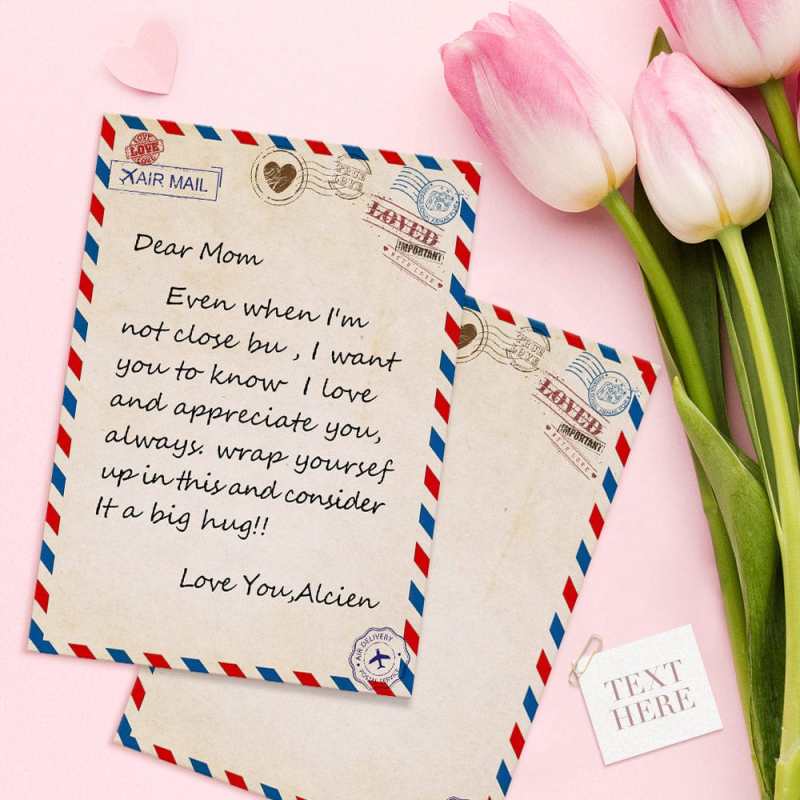 LOVE
LOVE
LOVE
AIR MAIL
TRUE
LOVE
LOVED
IMPORTANT
WITH LOVE
Dear Mom
Even when I'm
not close bu , I want
you to know I love
and appreciate you,
always. wrap yoursef
up in this and consider
It a big hug!!
Love You,Alcien
AIR DELIVERY
TRUE
LOVE
LOVED
IMPORTANT
WITH LOVE
TEXT
HERE